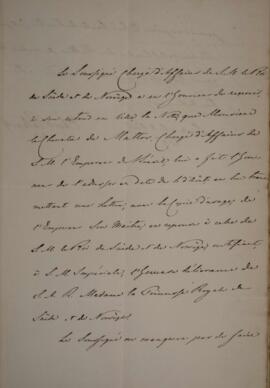 Le Soussigné Chargé d'Affaires de S. M. le Roi
de Suède et de Norvège a eu l'honneur de recevoir
à son retour en ville la Note que Monsieur
le Chevalier de Mattos, Chargé d'Affaires de
S. M. l'Empereur du Brésil, lui a fait l'hon-
neur de l'adresser en date de
mettant une lettre, avec la Copie d'usage, de
l'Empereur Son Maître, en réponse à celle de
S. M. le Roi de Suède et de Norvège notifiant
à S. M. Impériale, l'heureuse délivrance de
S. A. R. Madame la Princesse Royale de
Suède et de Norvège.
Le Soussigné ne manquera pas de faire